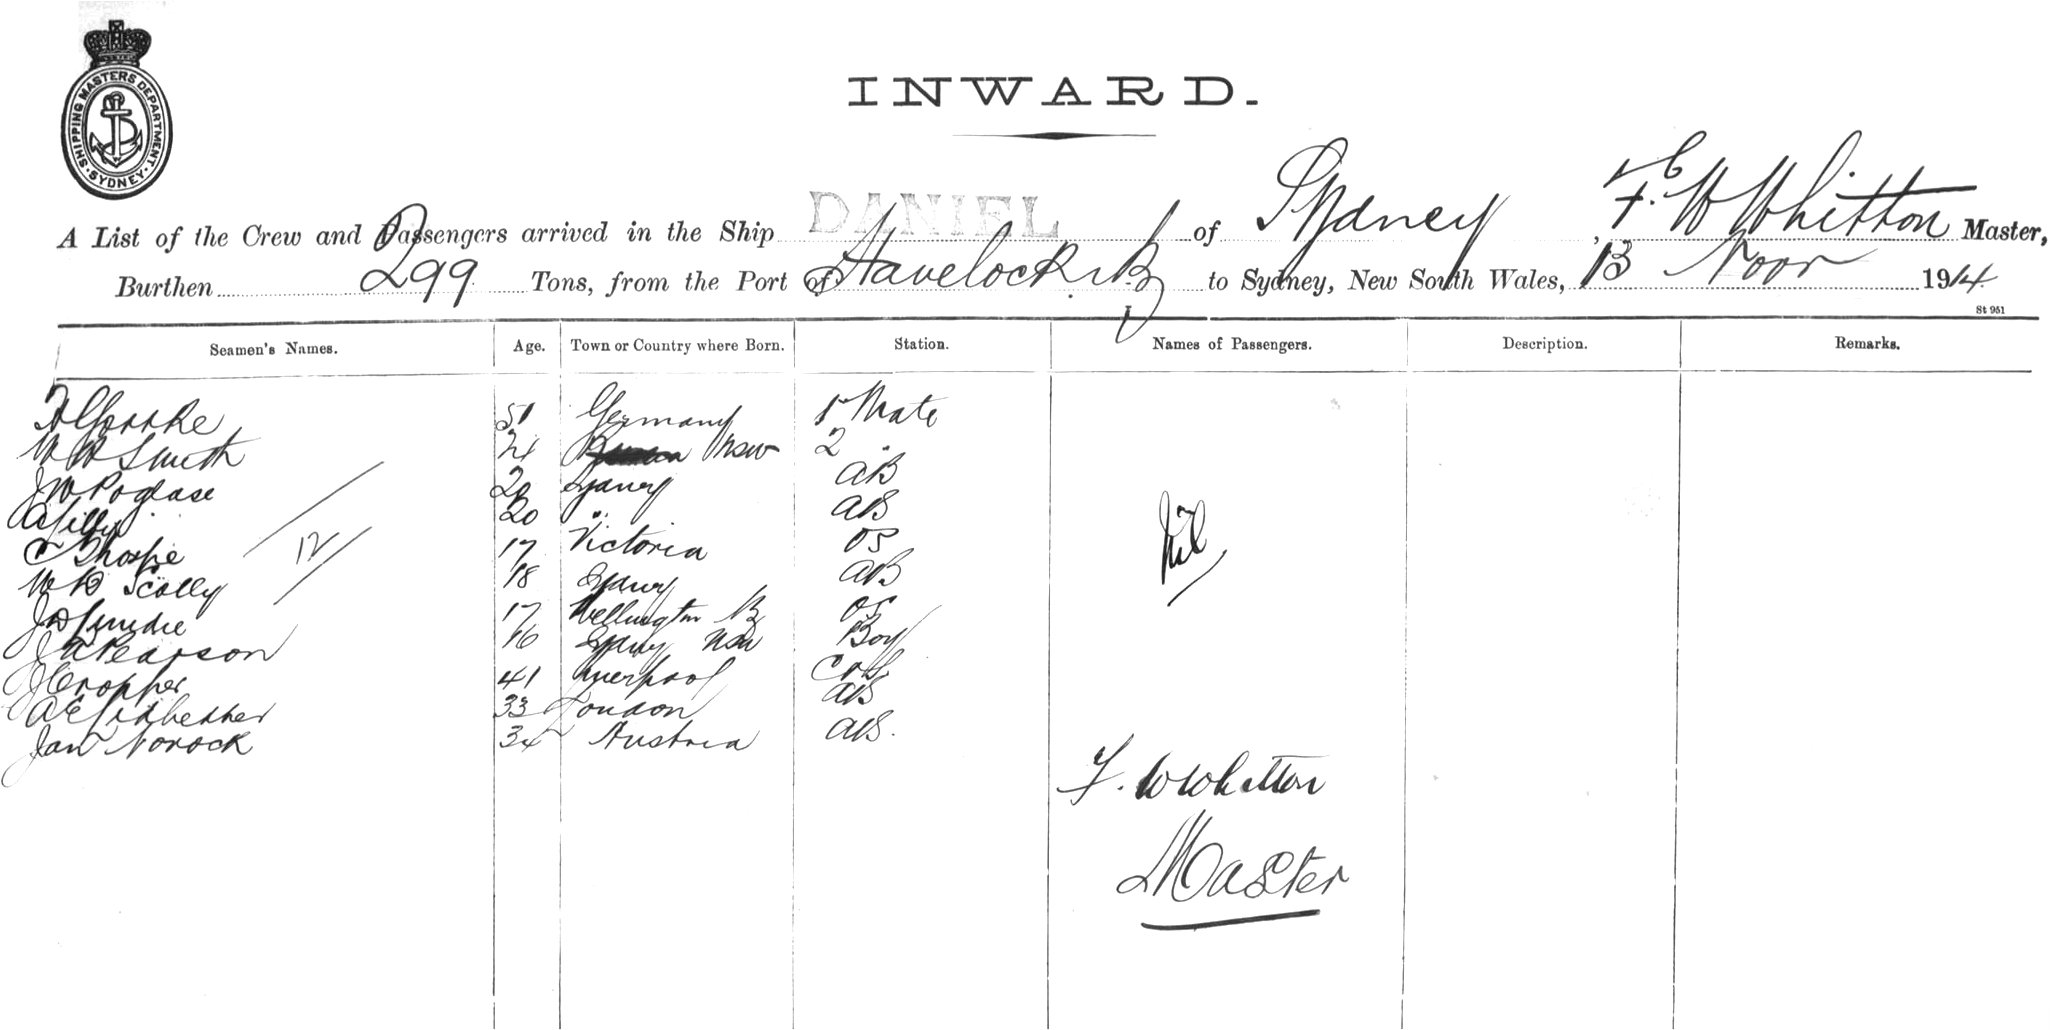 SHIPPING MASTERS DEPARTMENT
SYDNEY
INWARD.
A List of the Crew and Passengers arrived in the Ship DANIEL of Sydney, F. W Whitton Master,
Burthen 299 Tons, from the Port of Havelock to Sydney, New South Wales, 13 Novr 1914
St 951
Seamen's Names. Age. Town or Country where Born. Station. Names of Passengers. Description. Remarks.
51 Germany 1st Mate
W W Smith 24 NSW 2 "
J W Poglase 20 Sydney AB
A Lilly 20 " AB
C Thorpe 17 Victoria OS
W B Scolly 18 Sydney AB
17 Wellington NZ OS
J A Pearson 16 Sydney NSW Boy
J Cropper 41 Liverpool
33 London AB
Jan Novock 34 Austria AB.
12
Nil
F. W Whitton
Master